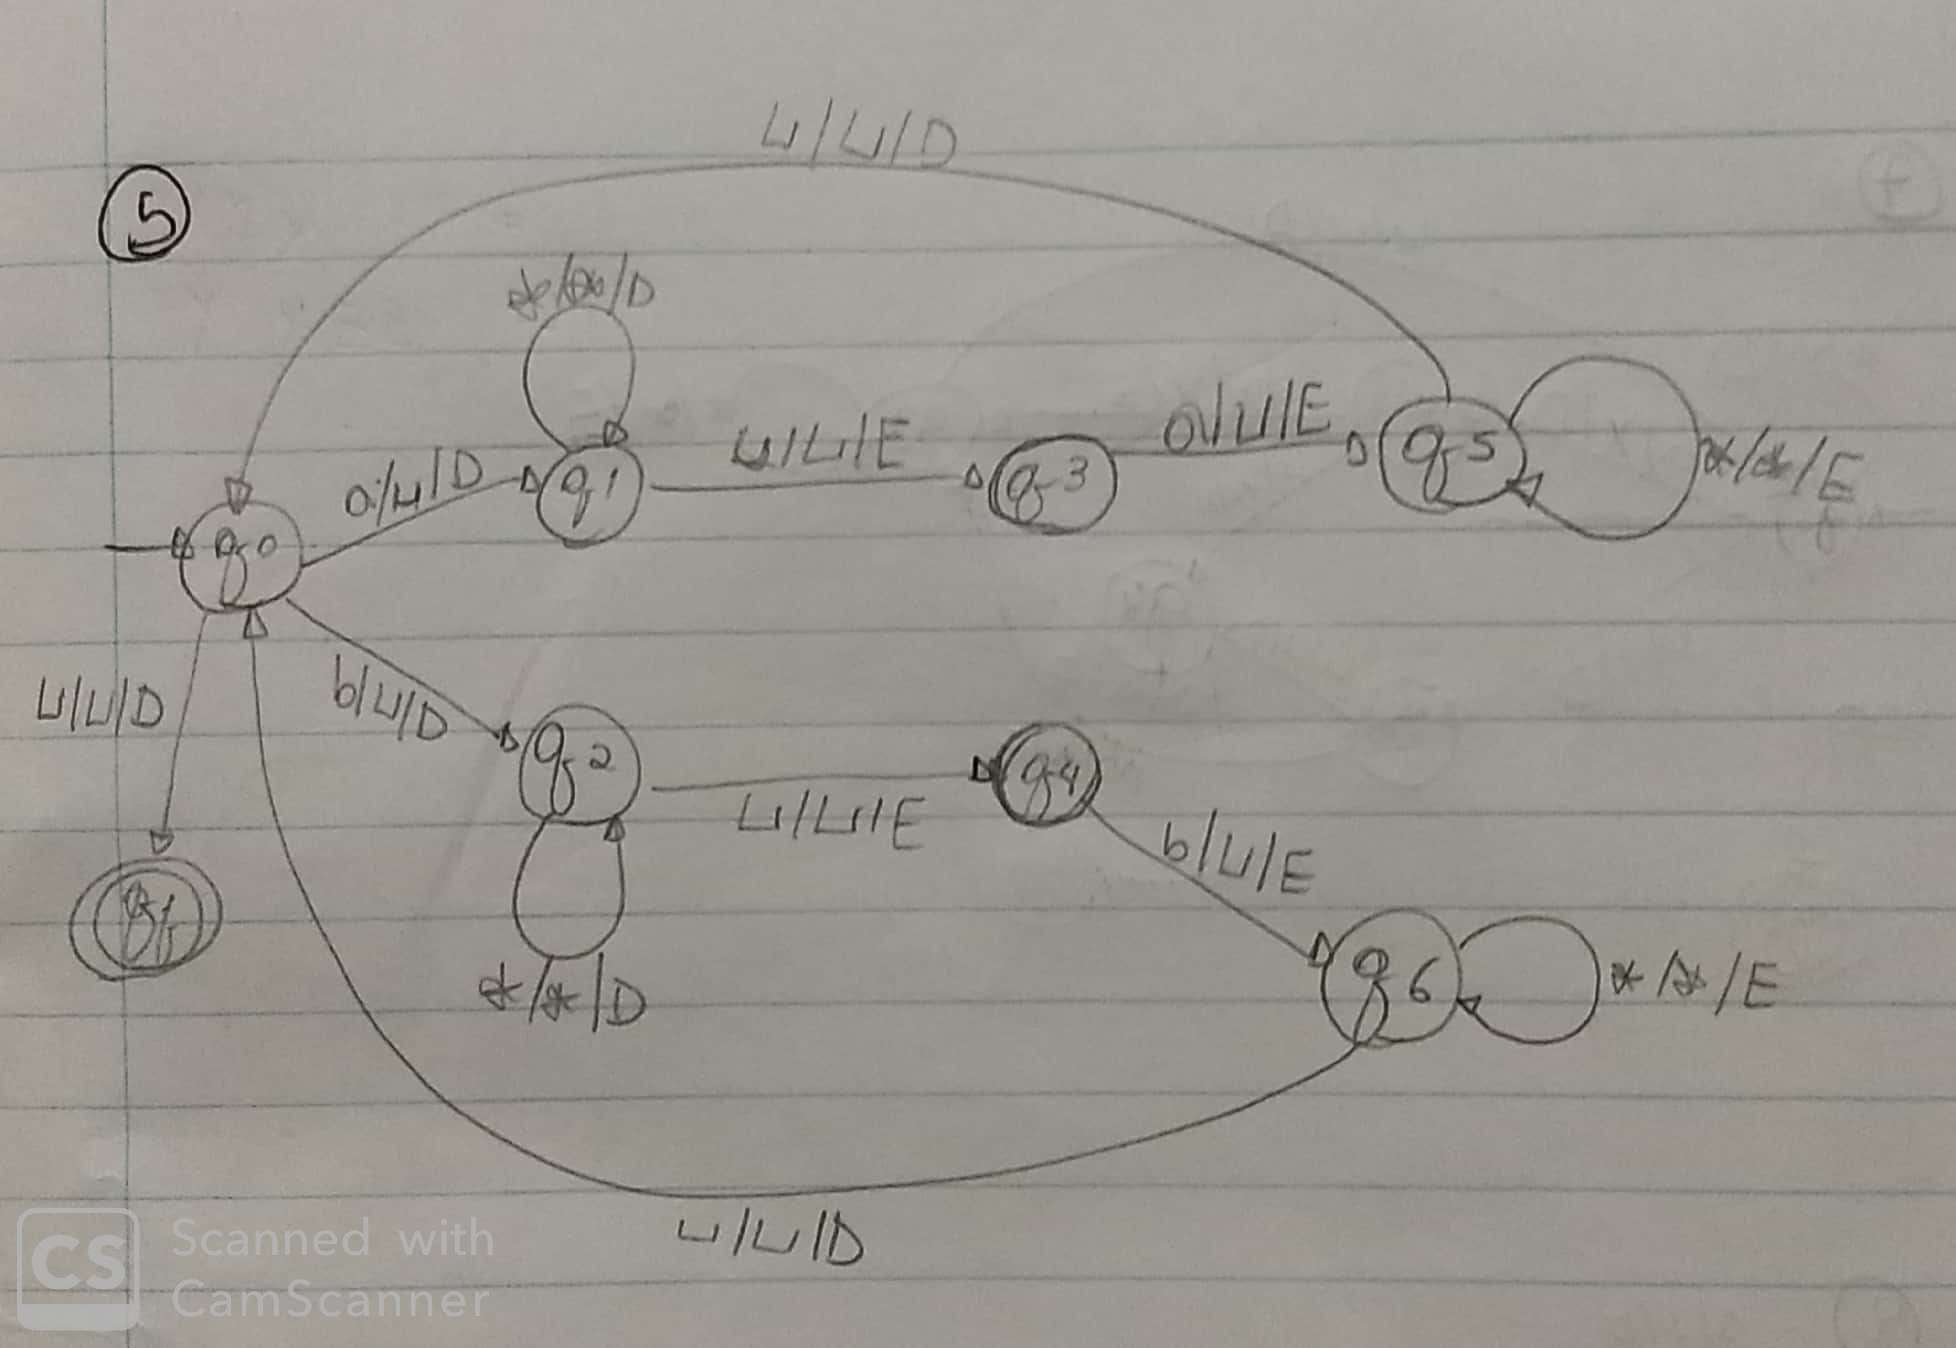 ⊔/⊔/D
5
*/*/D
a/⊔/D
q1
⊔/⊔/E
q3
a/⊔/E
q5
*/*/E
q0
⊔/⊔/D
b/⊔/D
q2
⊔/⊔/E
q4
b/⊔/E
qf
*/*/D
q6
*/*/E
⊔/⊔/D
CS Scanned with
CamScanner